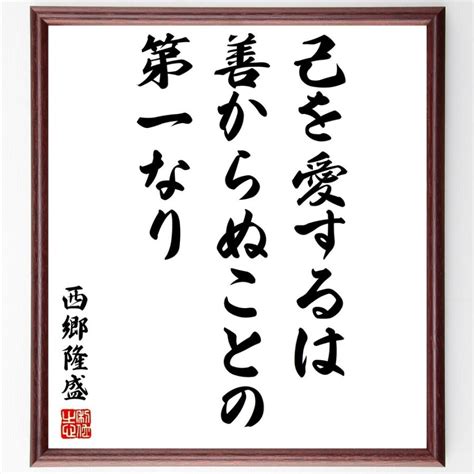 己を愛するは
善からぬことの
第一なり
西郷隆盛